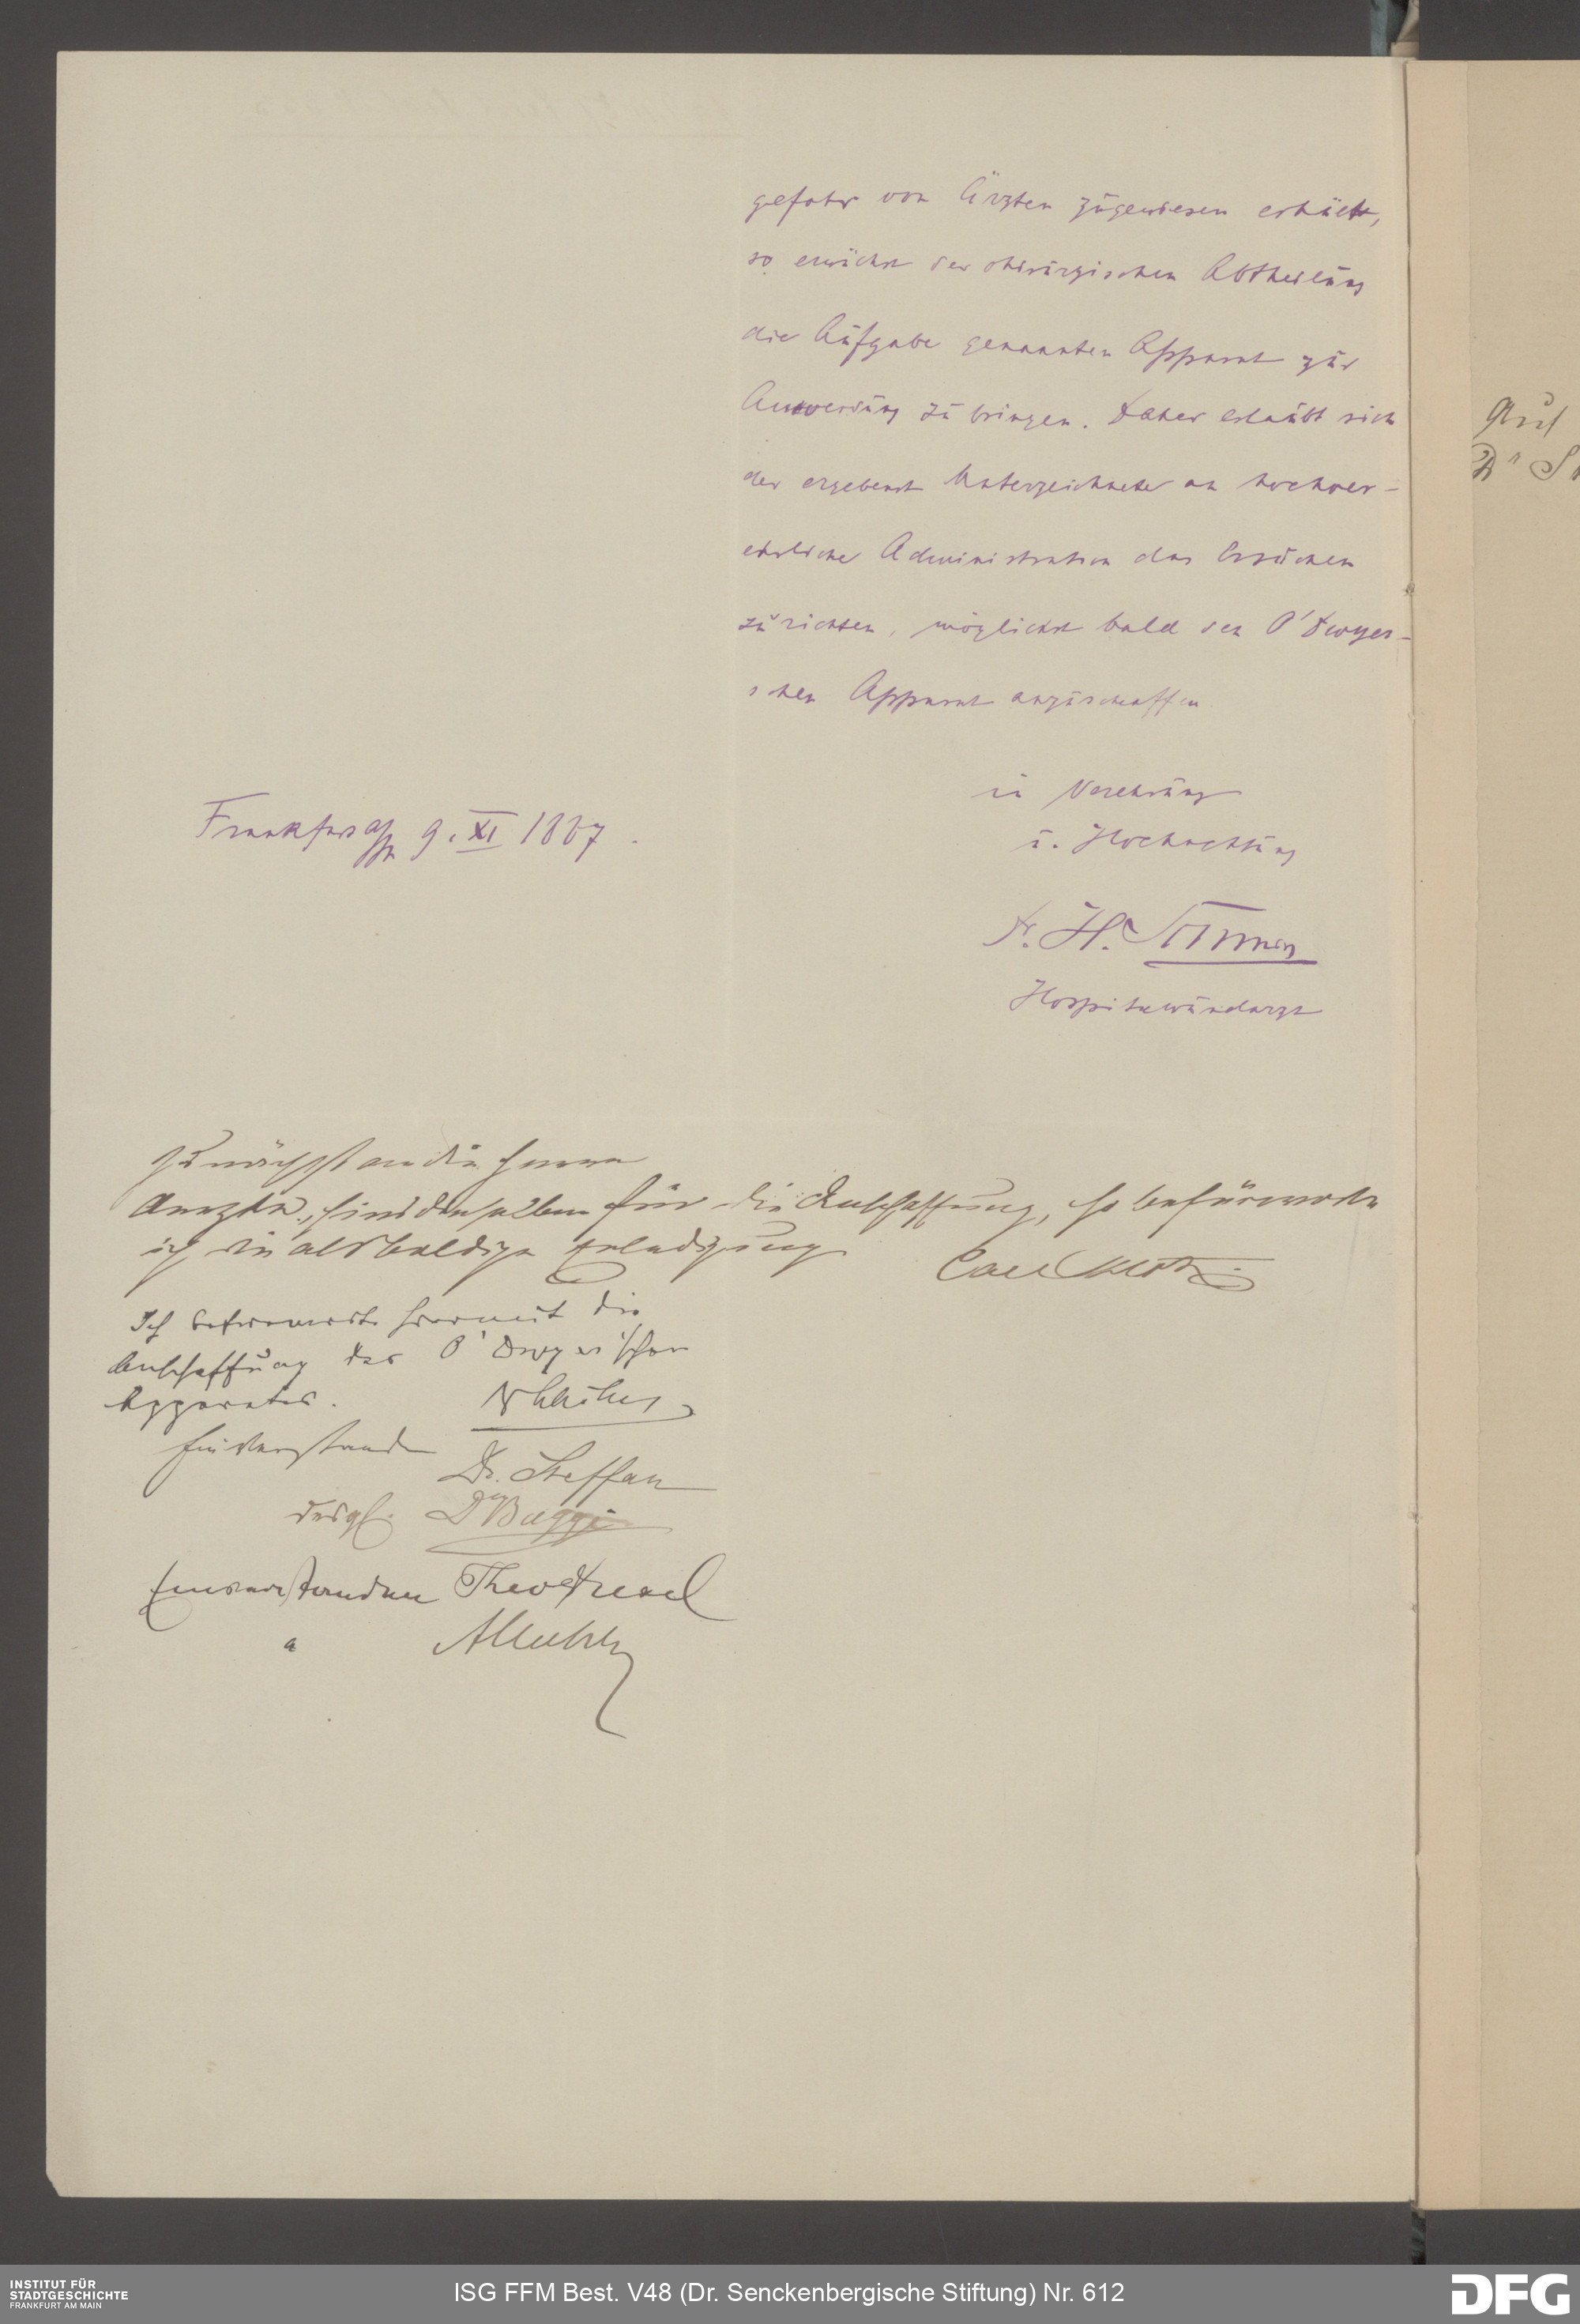 gefahr von Ärzten zugewiesen erhält,
so erwächst der chirurgischen Abtheilung
die Aufgabe genannten Apparat zur
Anwendung zu bringen. Daher erlaubt sich
der ergebenst Unterzeichnete an hochver-
ehrliche Administration das Ersuchen
zu richten, möglichst bald den O'Dwyer-
schen Apparat anzuschaffen
in Verehrung
u. Hochachtung
Frankfurt a/M 9. XI 1887.
Dr. H.
Hospitalwundarzt
Zunächst an die Herren
Aerzte, sind dieselben für die Anschaffung, so befürworte
ich die alsbaldige Erledigung
Carl
Ich befürworte hiermit die
Anschaffung des O'Dwyer'schen
Apparates.
Einverstanden
Dr. Steffan
desgl. Dr
Einverstanden Theod
Auf
Dr
INSTITUT FÜR
STADTGESCHICHTE
FRANKFURT AM MAIN
ISG FFM Best. V48 (Dr. Senckenbergische Stiftung) Nr. 612
DFG